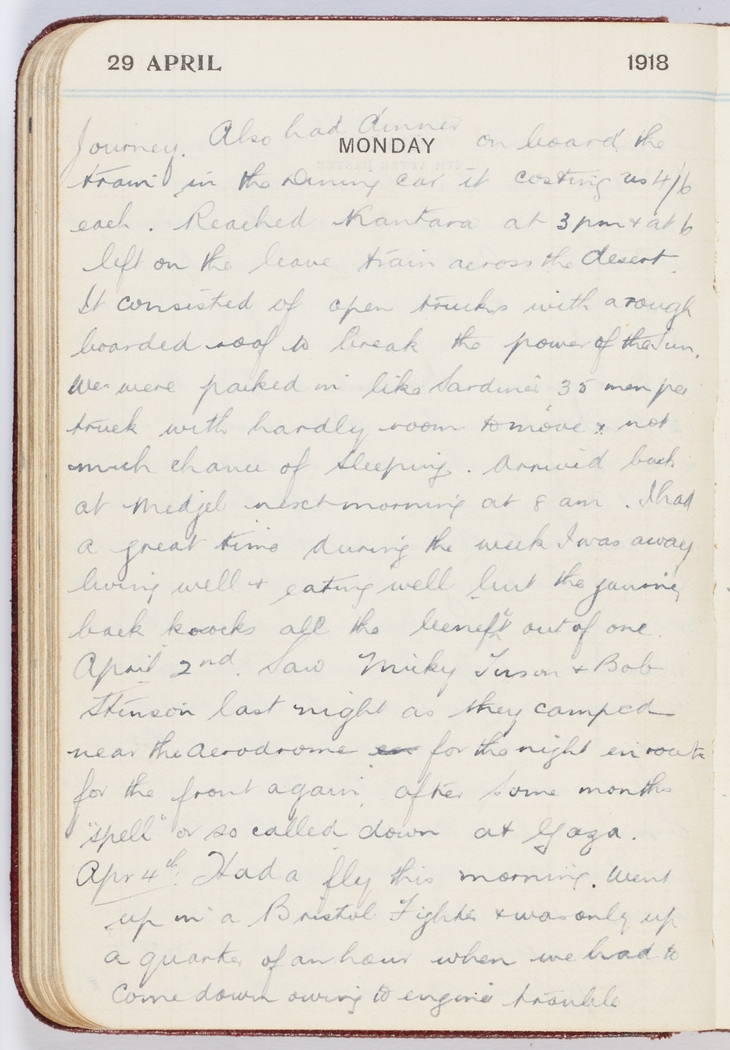 29 APRIL 1918
MONDAY
Journey. Also had dinner on board the
train in the Dining car it costing us 4/6
each. Reached Kantara at 3 pm & at 6
left on the leave train across the desert.
It consisted of open trucks with a rough
boarded roof to break the power of the Sun.
We were packed in like Sardines 35 men per
truck with hardly room to move & not
much chance of sleeping. Arrived back
at Medjel next morning at 8 am. I had
a great time during the week I was away
living well & eating well but the journey
back knocks all the benefit out of one.
April 2nd. Saw Micky & Bob
Stinson last night as they camped
near the Aerodrome for the night en route
for the front again after some months
"spell" or so called down at Gaza.
Apr 4th. Had a fly this morning. Went
up in a Bristol Fighter & was only up
a quarter of an hour when we had to
come down owing to engine trouble